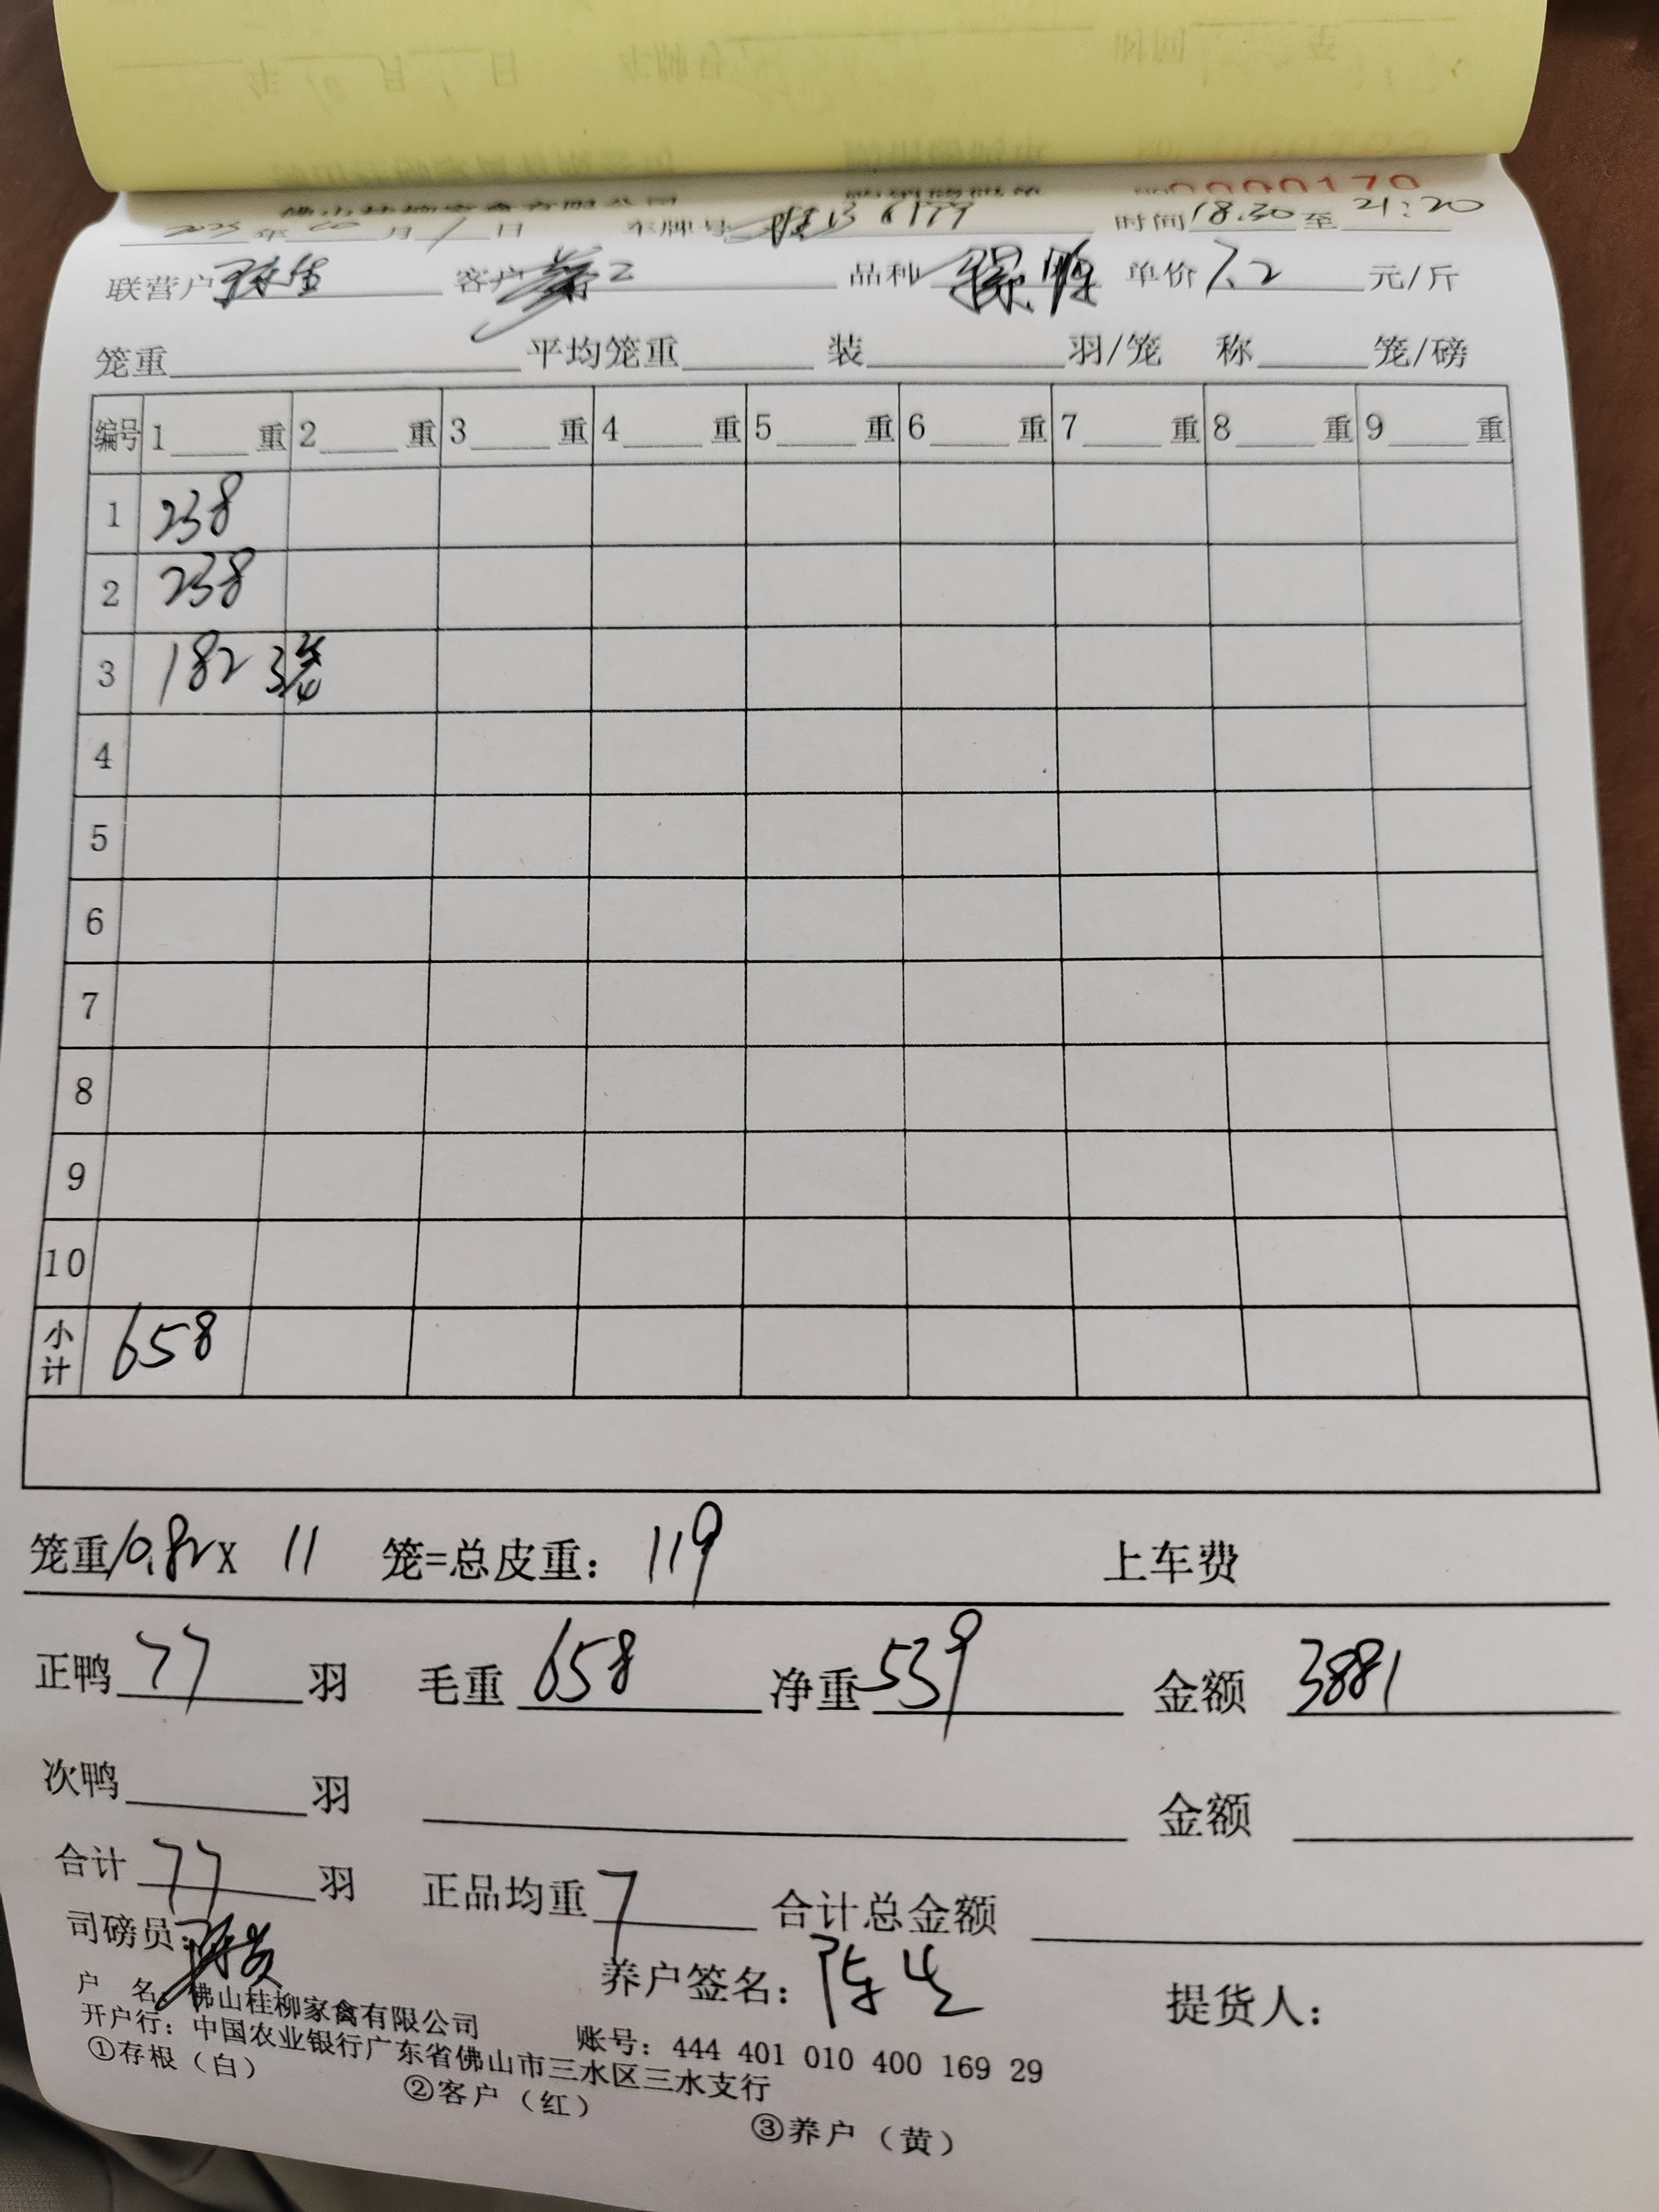 0000170
年 月 1 日 车牌号 6199 时间 18.30 至 21:20
联营户 陈生 客户 二 品种 单价 7.2 元/斤
笼重 平均笼重 装 羽/笼 称 笼/磅
编号 1 重 2 重 3 重 4 重 5 重 6 重 7 重 8 重 9 重
1 238
2 238
3 182 3笼
4
5
6
7
8
9
10
小计 658
笼重 10.82 x 11 笼=总皮重: 119 上车费
正鸭 77 羽 毛重 658 净重 539 金额 3881
次鸭 羽 金额
合计 77 羽 正品均重 7 合计总金额
司磅员: 养户签名: 陈生 提货人:
户 名: 佛山桂柳家禽有限公司 账号: 444 401 010 400 169 29
开户行: 中国农业银行广东省佛山市三水区三水支行
①存根（白） ②客户（红） ③养户（黄）